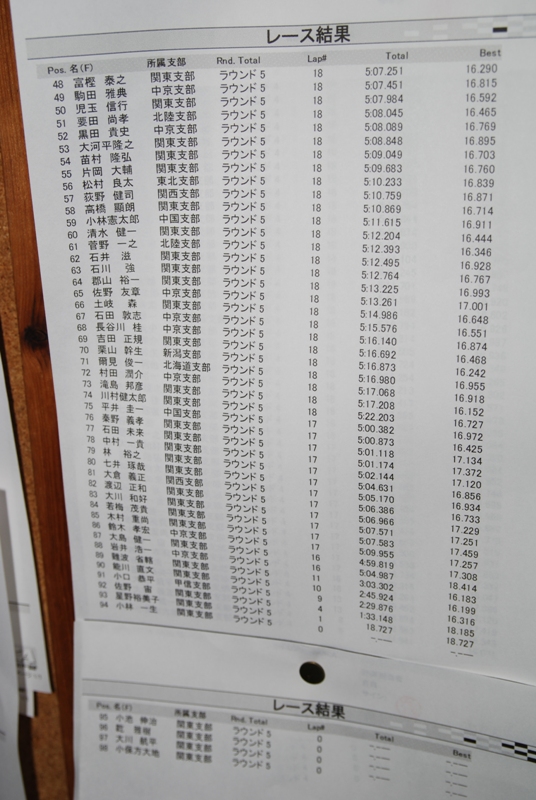 レース結果
Pos. 名(F) 所属支部 Rnd. Total Lap# Total Best
48 富樫 泰之 関東支部 ラウンド 5 18 5:07.251 16.290
49 駒田 雅典 中京支部 ラウンド 5 18 5:07.451 16.815
50 児玉 信行 関東支部 ラウンド 5 18 5:07.984 16.592
51 要田 尚孝 北陸支部 ラウンド 5 18 5:08.045 16.465
52 黒田 貴史 中京支部 ラウンド 5 18 5:08.089 16.769
53 大河平隆之 関東支部 ラウンド 5 18 5:08.848 16.895
54 苗村 隆弘 関東支部 ラウンド 5 18 5:09.049 16.703
55 片岡 大輔 関東支部 ラウンド 5 18 5:09.683 16.760
56 松村 良太 東北支部 ラウンド 5 18 5:10.233 16.839
57 荻野 健司 関西支部 ラウンド 5 18 5:10.759 16.871
58 高橋 顕朗 関東支部 ラウンド 5 18 5:10.869 16.714
59 小林憲太郎 中国支部 ラウンド 5 18 5:11.615 16.911
60 清水 健一 関東支部 ラウンド 5 18 5:12.204 16.444
61 菅野 一之 北陸支部 ラウンド 5 18 5:12.393 16.346
62 石井 滋 関東支部 ラウンド 5 18 5:12.495 16.928
63 石川 強 関東支部 ラウンド 5 18 5:12.764 16.767
64 郡山 裕一 関東支部 ラウンド 5 18 5:13.225 16.993
65 佐野 友章 中京支部 ラウンド 5 18 5:13.261 17.001
66 土岐 森 関東支部 ラウンド 5 18 5:14.986 16.648
67 石田 敦志 中京支部 ラウンド 5 18 5:15.576 16.551
68 長谷川 桂 中京支部 ラウンド 5 18 5:16.140 16.874
69 吉田 正規 関東支部 ラウンド 5 18 5:16.692 16.468
70 栗山 幹生 新潟支部 ラウンド 5 18 5:16.873 16.242
71 爾見 俊一 北海道支部 ラウンド 5 18 5:16.980 16.955
72 村田 潤介 中京支部 ラウンド 5 18 5:17.068 16.918
73 滝島 邦彦 関東支部 ラウンド 5 18 5:17.208 16.152
74 川村健太郎 関東支部 ラウンド 5 18 5:22.203 16.727
75 平井 圭一 中国支部 ラウンド 5 17 5:00.382 16.972
76 秦野 義孝 関東支部 ラウンド 5 17 5:00.873 16.425
77 石田 未来 関東支部 ラウンド 5 17 5:01.118 17.134
78 中村 一貴 関東支部 ラウンド 5 17 5:01.174 17.372
79 林 裕之 関東支部 ラウンド 5 17 5:02.144 17.120
80 七井 琢哉 関東支部 ラウンド 5 17 5:04.631 16.856
81 大倉 義正 関西支部 ラウンド 5 17 5:05.170 16.934
82 渡辺 正和 関東支部 ラウンド 5 17 5:06.386 16.733
83 大川 和好 関東支部 ラウンド 5 17 5:06.966 17.229
84 若梅 茂貴 関東支部 ラウンド 5 17 5:07.571 17.251
85 木村 重尚 関東支部 ラウンド 5 17 5:07.583 17.459
86 孝宏 中京支部 ラウンド 5 17 5:09.955 17.257
87 大島 健一 関東支部 ラウンド 5 16 4:59.819 17.308
88 岩井 浩一 中京支部 ラウンド 5 16 5:04.987 18.414
89 難波 省輔 関東支部 ラウンド 5 11 3:03.302 16.183
90 直文 関東支部 ラウンド 5 10 2:45.924 16.199
91 小口 恭平 甲信支部 ラウンド 5 9 2:29.876 16.316
92 佐野 宙 関東支部 ラウンド 5 4 1:33.148 18.185
93 星野裕美子 関東支部 ラウンド 5 1 18.727 18.727
94 小林 一生 関東支部 ラウンド 5 0 --.--- --.---
レース結果
Pos. 名(F) 所属支部 Rnd. Total Lap# Total Best
95 小池 伸治 関東支部 ラウンド 5 0 --.--- --.---
96 乾 雅樹 関東支部 ラウンド 5 0 --.--- --.---
97 大川 航平 関東支部 ラウンド 5 0 --.--- --.---
98 小保方大地 関東支部 ラウンド 5 0 --.--- --.---